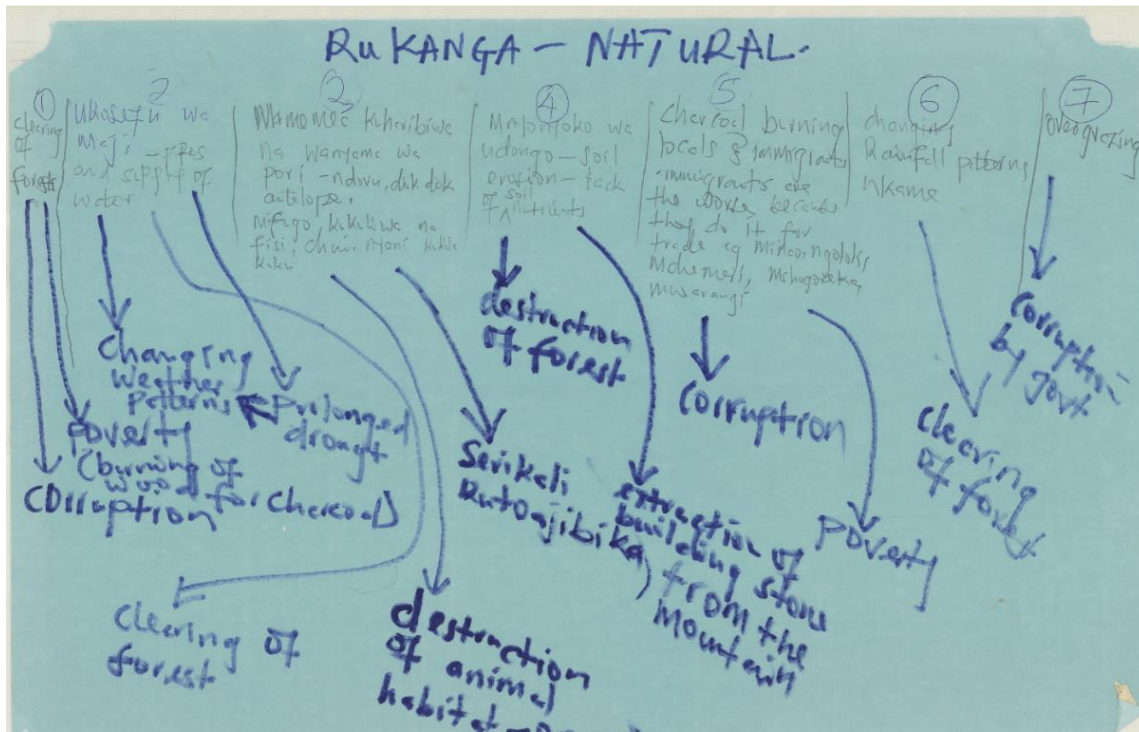 RUKANGA - NATURAL.
①
clearing
of
forests
2
Ukosefu wa
Maji
and supply of
water
2
Mmomee kuharibiwa
na wanyama wa
pori - ndovu, dik dik
antelope.
mifugo kukuliwa na
fisi, chui. Njoni kukula
kuku
④
Mmomonyoko wa
udongo - soil
erosion - lack
of soil nutrients
5
Charcoal burning
locals & immigrants
immigrants are
the worse because
they do it for
trade eg
⑥
changing
Rainfall patterns
nkame
⑦
overgrazing
Changing
weather
patterns
prolonged
drought
poverty
(burning of
wood for charcoal)
corruption
clearing of
forest
destruction
of animal
habitat
Serikali
kutoajibika
destruction
of forest
extraction of
building stone
from the
mountain
Corruption
poverty
clearing
of forest
Corruption
by govt